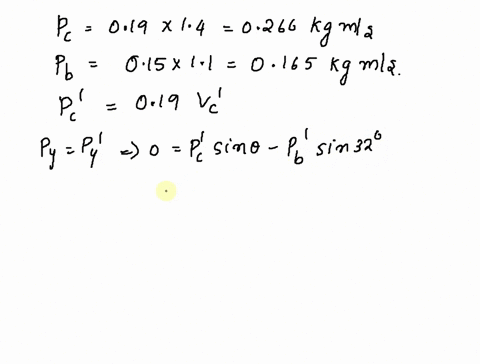 Pc = 0.19 x 1.4 = 0.266 kg m/s
Pb = 0.15 x 1.1 = 0.165 kg m/s.
Pc' = 0.19 Vc'
Py = Py' => 0 = Pc' sinθ - Pb' sin 32°